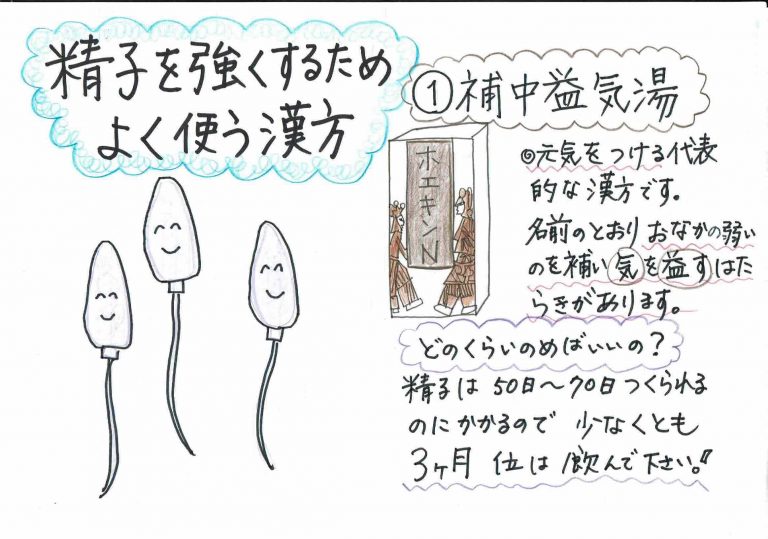 精子を強くするため
よく使う漢方
①補中益気湯
ホエキンN
◎元気をつける代表
的な漢方です。
名前のとおりおなかの弱い
のを補い気を益すはた
らきがあります。
どのくらいのめばいいの?
精子は50日~70日つくられる
のにかかるので 少なくとも
3ヶ月 位は飲んで下さい。!!